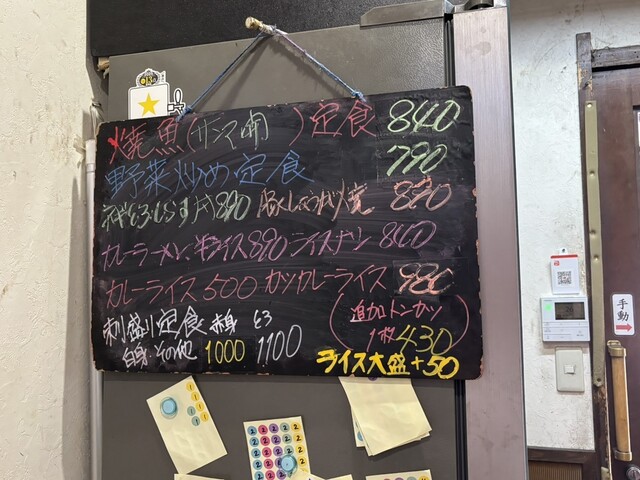 焼魚(サンマ開 )定食 840
野菜炒め定食 790
ネギとろしらす丼 890 豚しょうが焼 890
カレーラーメン、半ライス890 ライスナシ 840
カレーライス500 カツカレーライス 980
刺り盛り定食 赤身 とろ
白身 その他 1000 1100
(追加トンカツ
1枚430)
ライス大盛+50
手動